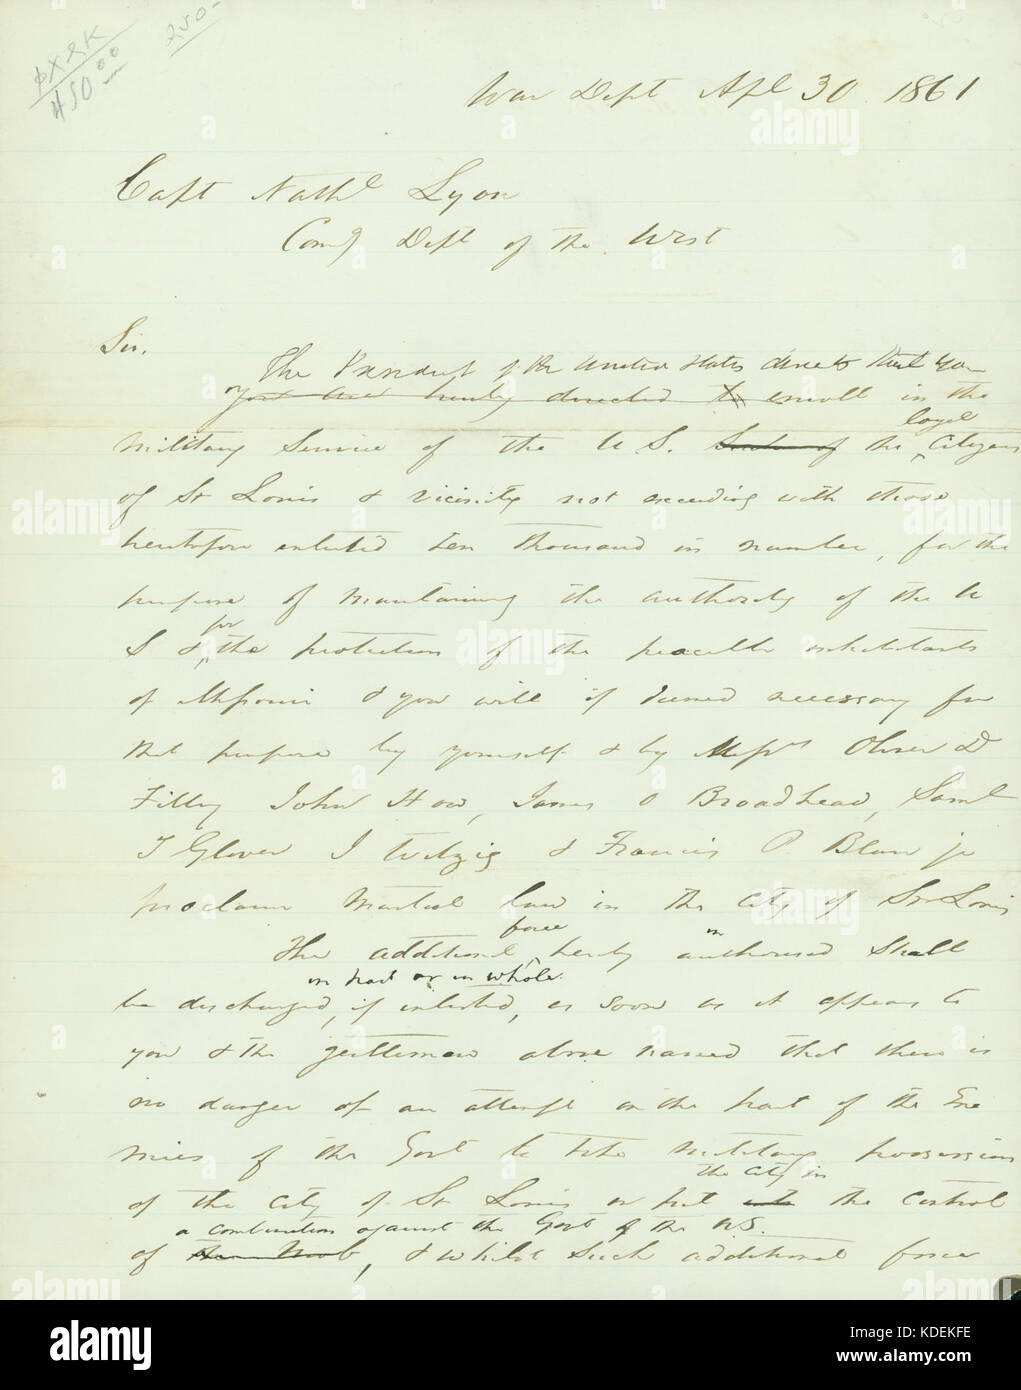 $X&K
450.00
250-
War Dept Apl 30 1861
Capt Nathl Lyon
Comg Dept of the West
Sir.
The President of the United States directs that you
you are hereby directed to enroll in the
loyal
military Service of the U S. the Citizens
of St Louis & vicinity not exceeding with those
heretofore enlisted ten thousand in number, for the
purpose of maintaining the authority of the U
for
S & the protection of the peaceable inhabitants
of Missouri & you will if deemed necessary for
that purpose by yourself & by Messrs Oliver D
Filly John How, James O Broadhead, Saml
T Glover J Witzig & Francis P. Blair jr
proclaim Martial law in the City of St Louis
force
The additional hereby authorised shall
in part or in whole
be discharged, if enlisted, as soon as it appears to
you & the gentlemen above named that there is
no danger of an attempt on the part of the Ene
mies of the Govt to take military possession
the city in
of the City of St Louis or put into the control
a combination against the Govt of the U.S.
of the Mob, & whilst such additional force
alamy
alamy
Image ID: KDEKFE
www.alamy.com